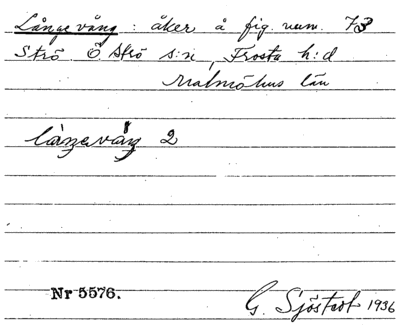 Långavång : åker å fig. num. 73
Strö Ö Strö s:n, Frosta h:d
Malmöhus län
låŋavåŋ 2
Nr 5576.
G. Sjöstedt 1936